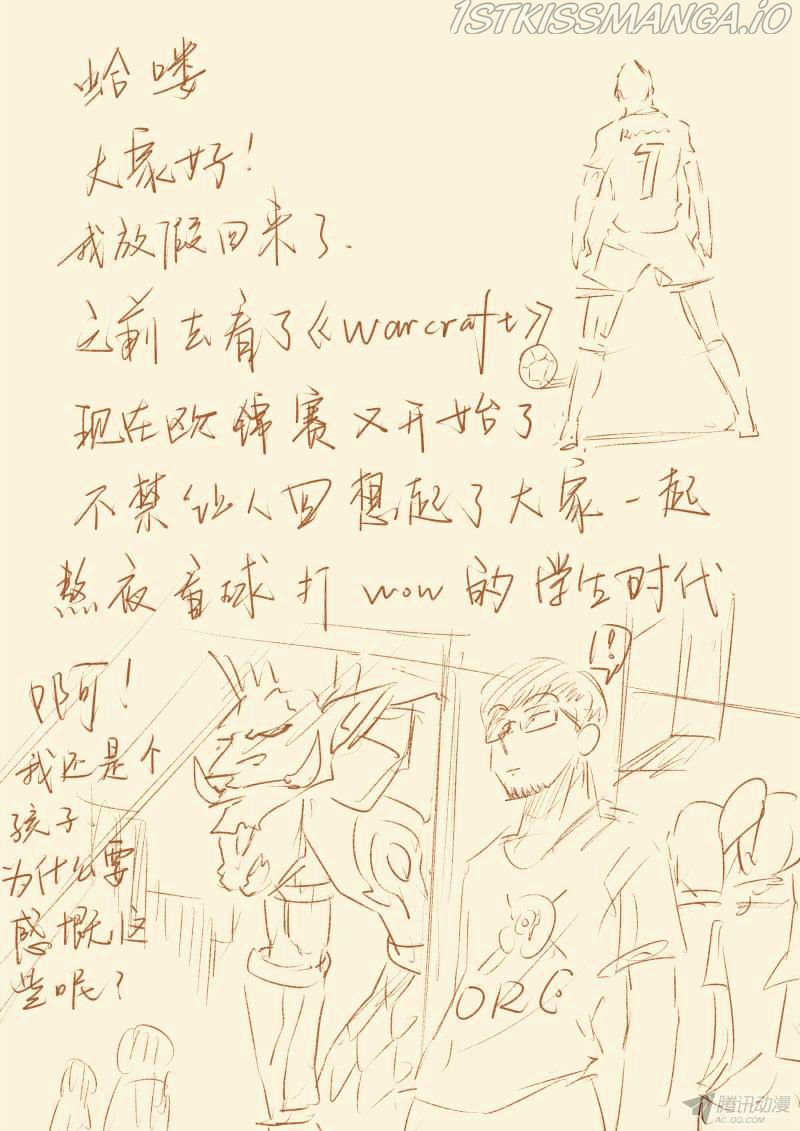 1STKISSMANGA.IO
哈喽
大家好!
我放假回来了.
之前去看了《warcraft》
现在欧锦赛又开始了
不禁让人回想起了大家一起
熬夜看球打wow的学生时代
7
!
啊!
我还是个
孩子
为什么要
感慨这
些呢?
ORC
腾讯动漫
AC.QQ.COM